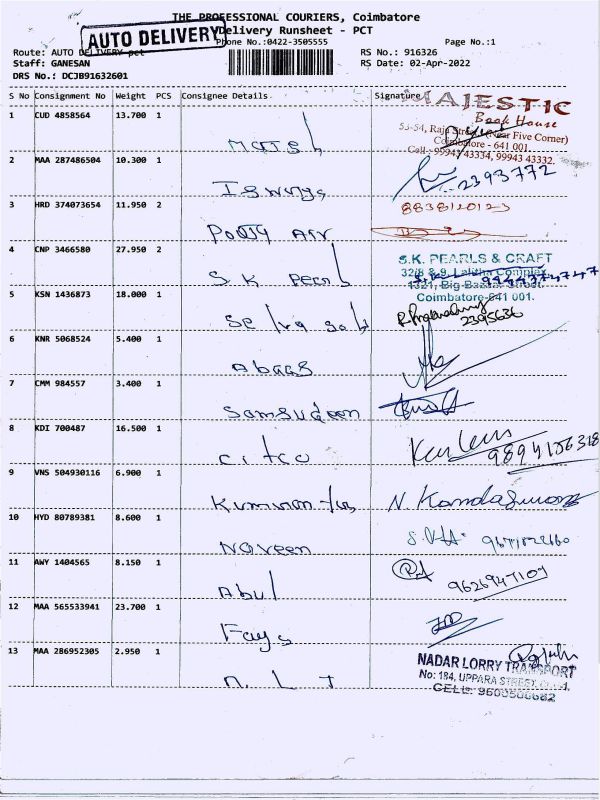 THE PROFESSIONAL COURIERS, Coimbatore
AUTO DELIVERY
Delivery Runsheet - PCT
Phone No.:0422-3505555
Page No.:1
Route: AUTO DELIVERY pct
RS No.: 916326
Staff: GANESAN
RS Date: 02-Apr-2022
DRS No.: DCJB91632601
S No Consignment No Weight PCS Consignee Details Signature
1 CUD 4858564 13.700 1
MAJESTIC
Book House
53-54, Raja Street (Near Five Corner)
Coimbatore - 641 001.
Cell : 99943 43334, 99943 43332.
2 MAA 287486504 10.300 1
2393772
3 HRD 374073654 11.950 2
8838120123
4 CNP 3466580 27.950 2
S.K. PEARLS & CRAFT
32/8 & 9, Lalitha Complex,
1321, Big Bazaar Street,
Coimbatore-641 001.
S.K. Pearl
5 KSN 1436873 18.000 1
2395636
6 KNR 5068524 5.400 1
Abaas
7 CMM 984557 3.400 1
Samsudeen
8 KDI 700487 16.500 1
citco
9 VNS 504930116 6.900 1
N. Kandaswamy
10 HYD 80789381 8.600 1
Naveen
11 AWY 1404565 8.150 1
9626947109
Abul
12 MAA 565533941 23.700 1
13 MAA 286952305 2.950 1
NADAR LORRY TRANSPORT
No: 184, UPPARA STREET
CELL: 9600500682
N. L T